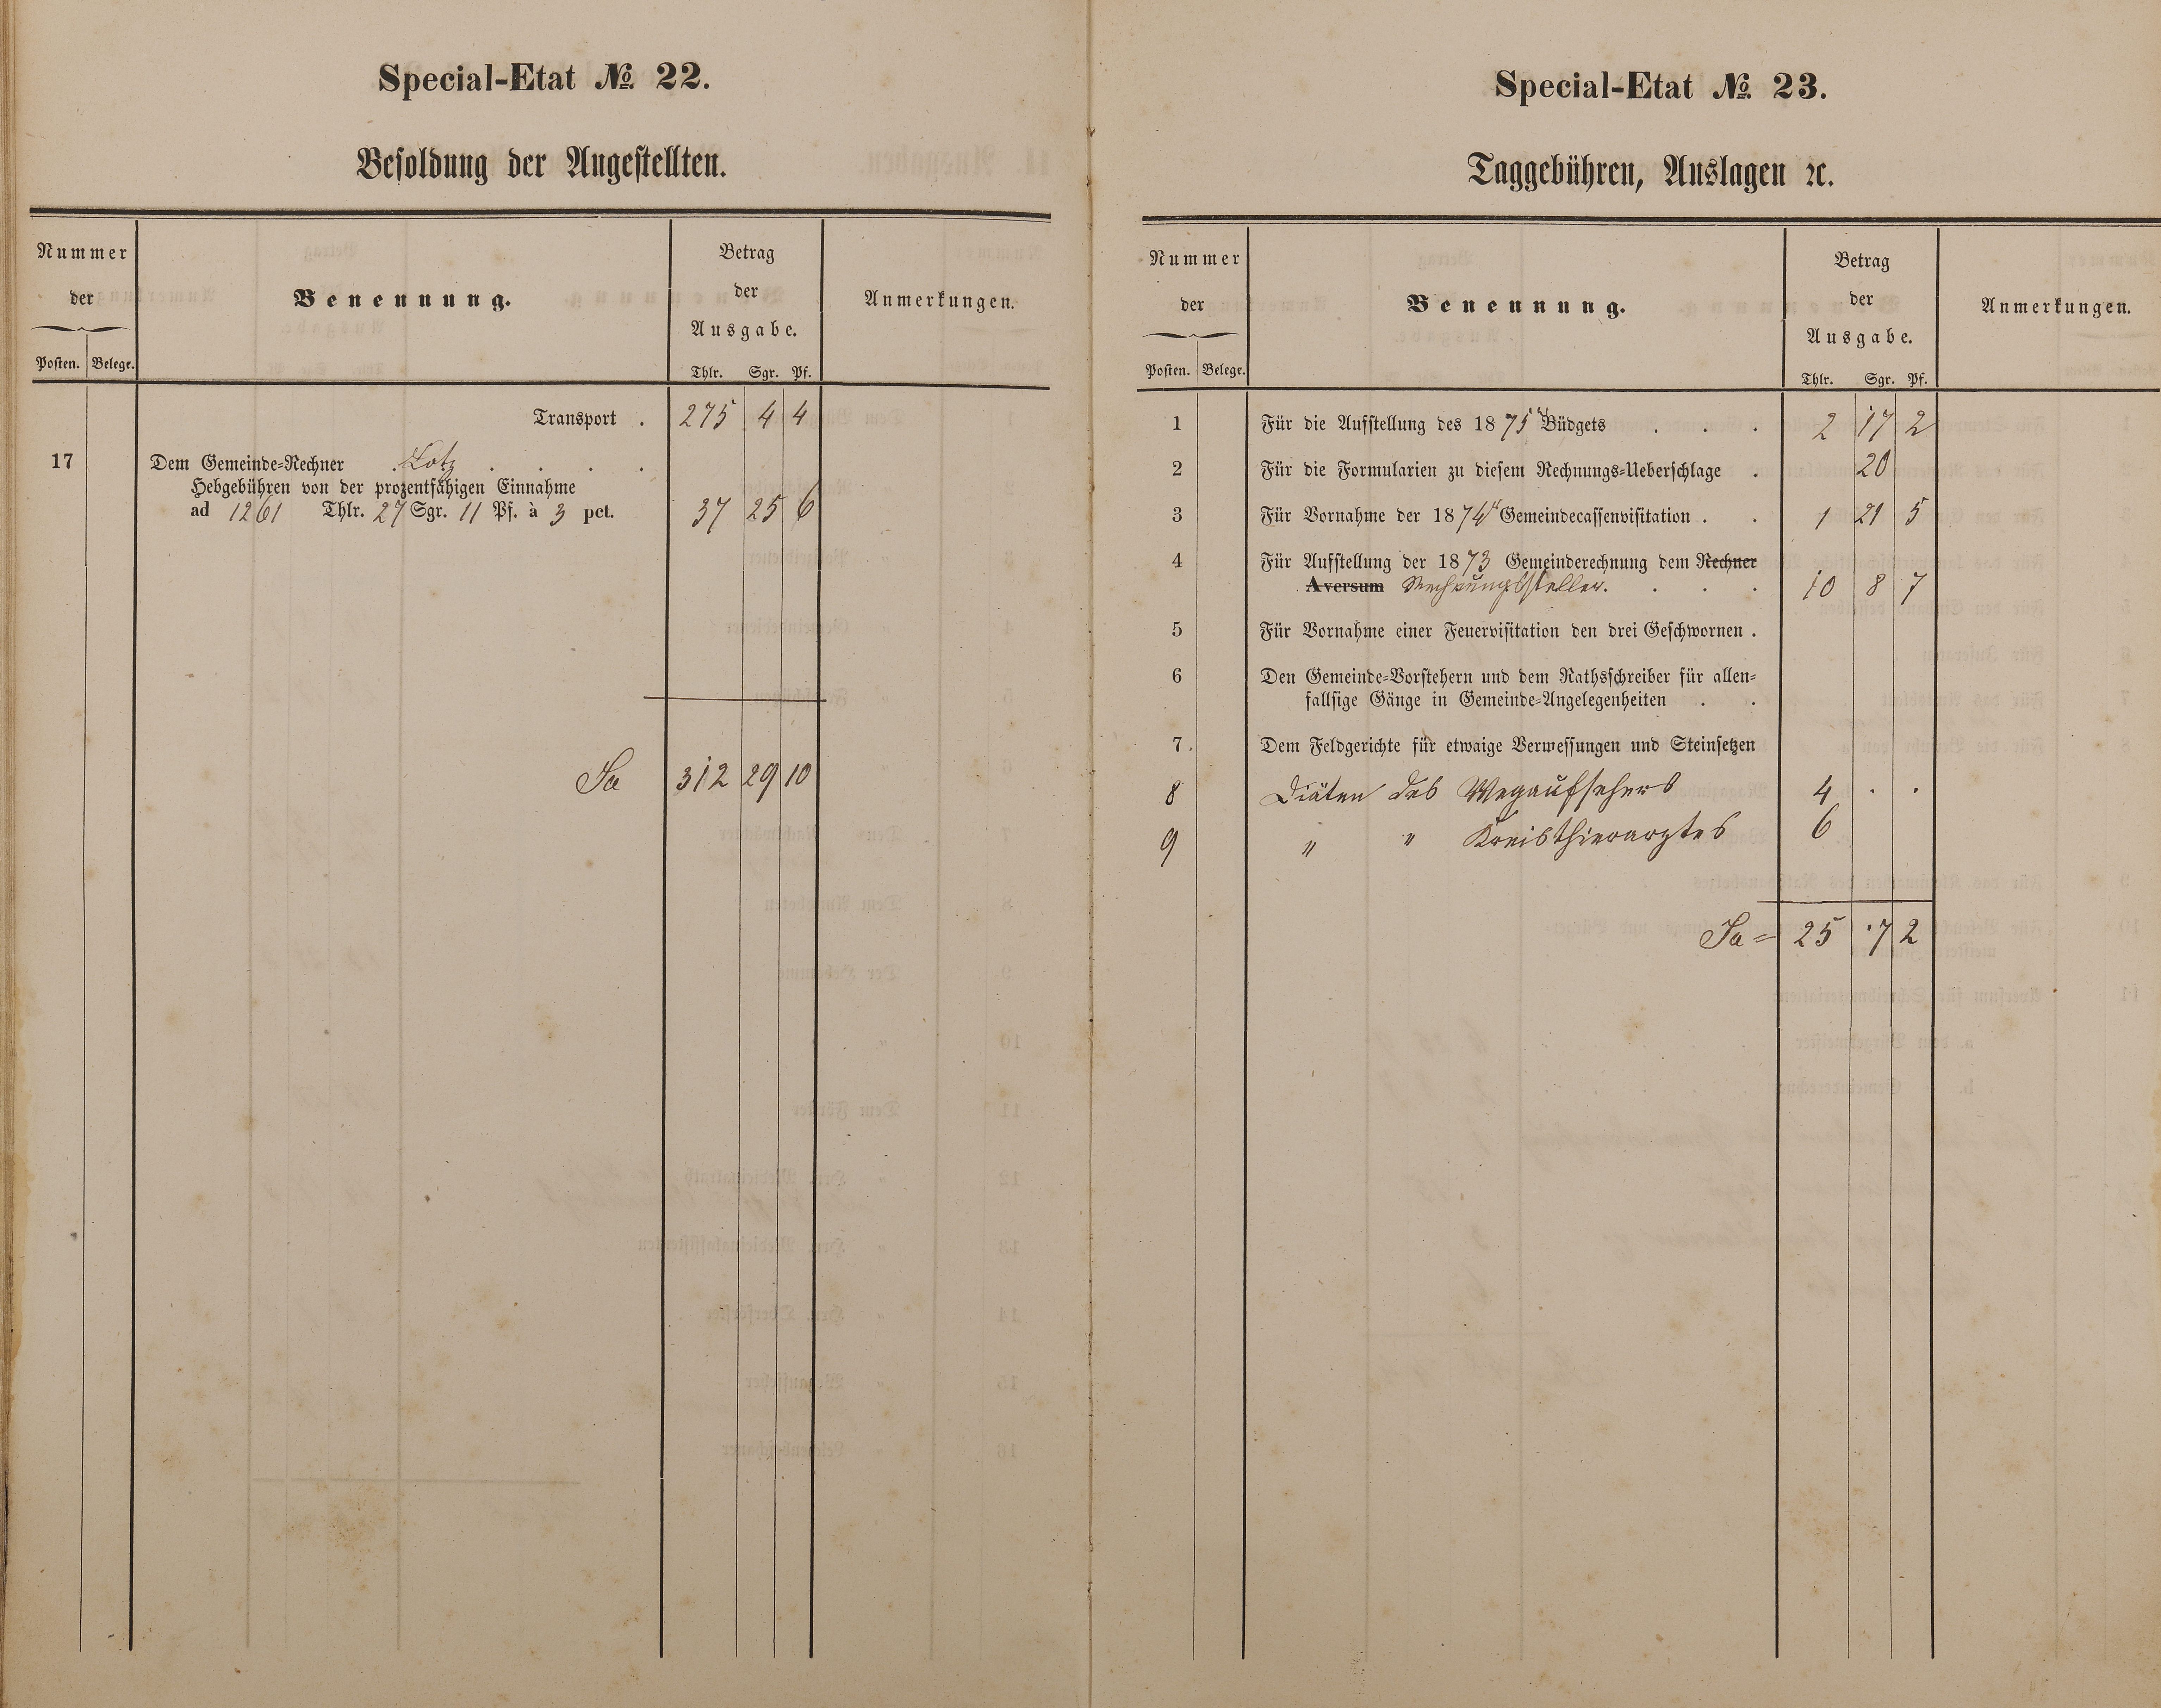 Special-Etat № 22.
Besoldung der Angestellten.
Nummer
der
Posten. Belege.
Benennung.
Betrag
der
Ausgabe.
Thlr. Sgr. Pf.
Anmerkungen.
Transport . 275 4 4
17 Dem Gemeinde-Rechner Lotz . . . .
Hebgebühren von der prozentfähigen Einnahme
ad 1261 Thlr. 27 Sgr. 11 Pf. à 3 pct. 37 25 6
Sa 312 29 10
Special-Etat № 23.
Taggebühren, Auslagen ꝛc.
Nummer
der
Posten. Belege.
Benennung.
Betrag
der
Ausgabe.
Thlr. Sgr. Pf.
Anmerkungen.
1 Für die Aufstellung des 1875r Büdgets . . . 2 17 2
2 Für die Formularien zu diesem Rechnungs-Ueberschlage . 20
3 Für Vornahme der 1874r Gemeindecassenvisitation . . 1 21 5
4 Für Aufstellung der 1873 Gemeinderechnung dem Rechner
Aversum Rechnungssteller. . . . 10 8 7
5 Für Vornahme einer Feuervisitation den drei Geschwornen .
6 Den Gemeinde-Vorstehern und dem Rathsschreiber für allen-
fallsige Gänge in Gemeinde-Angelegenheiten . .
7. Dem Feldgerichte für etwaige Vermessungen und Steinsetzen
8 Diäten des Wegaufsehers 4 . .
9 " " Kreisthierarztes 6
Sa = 25 . 7 2